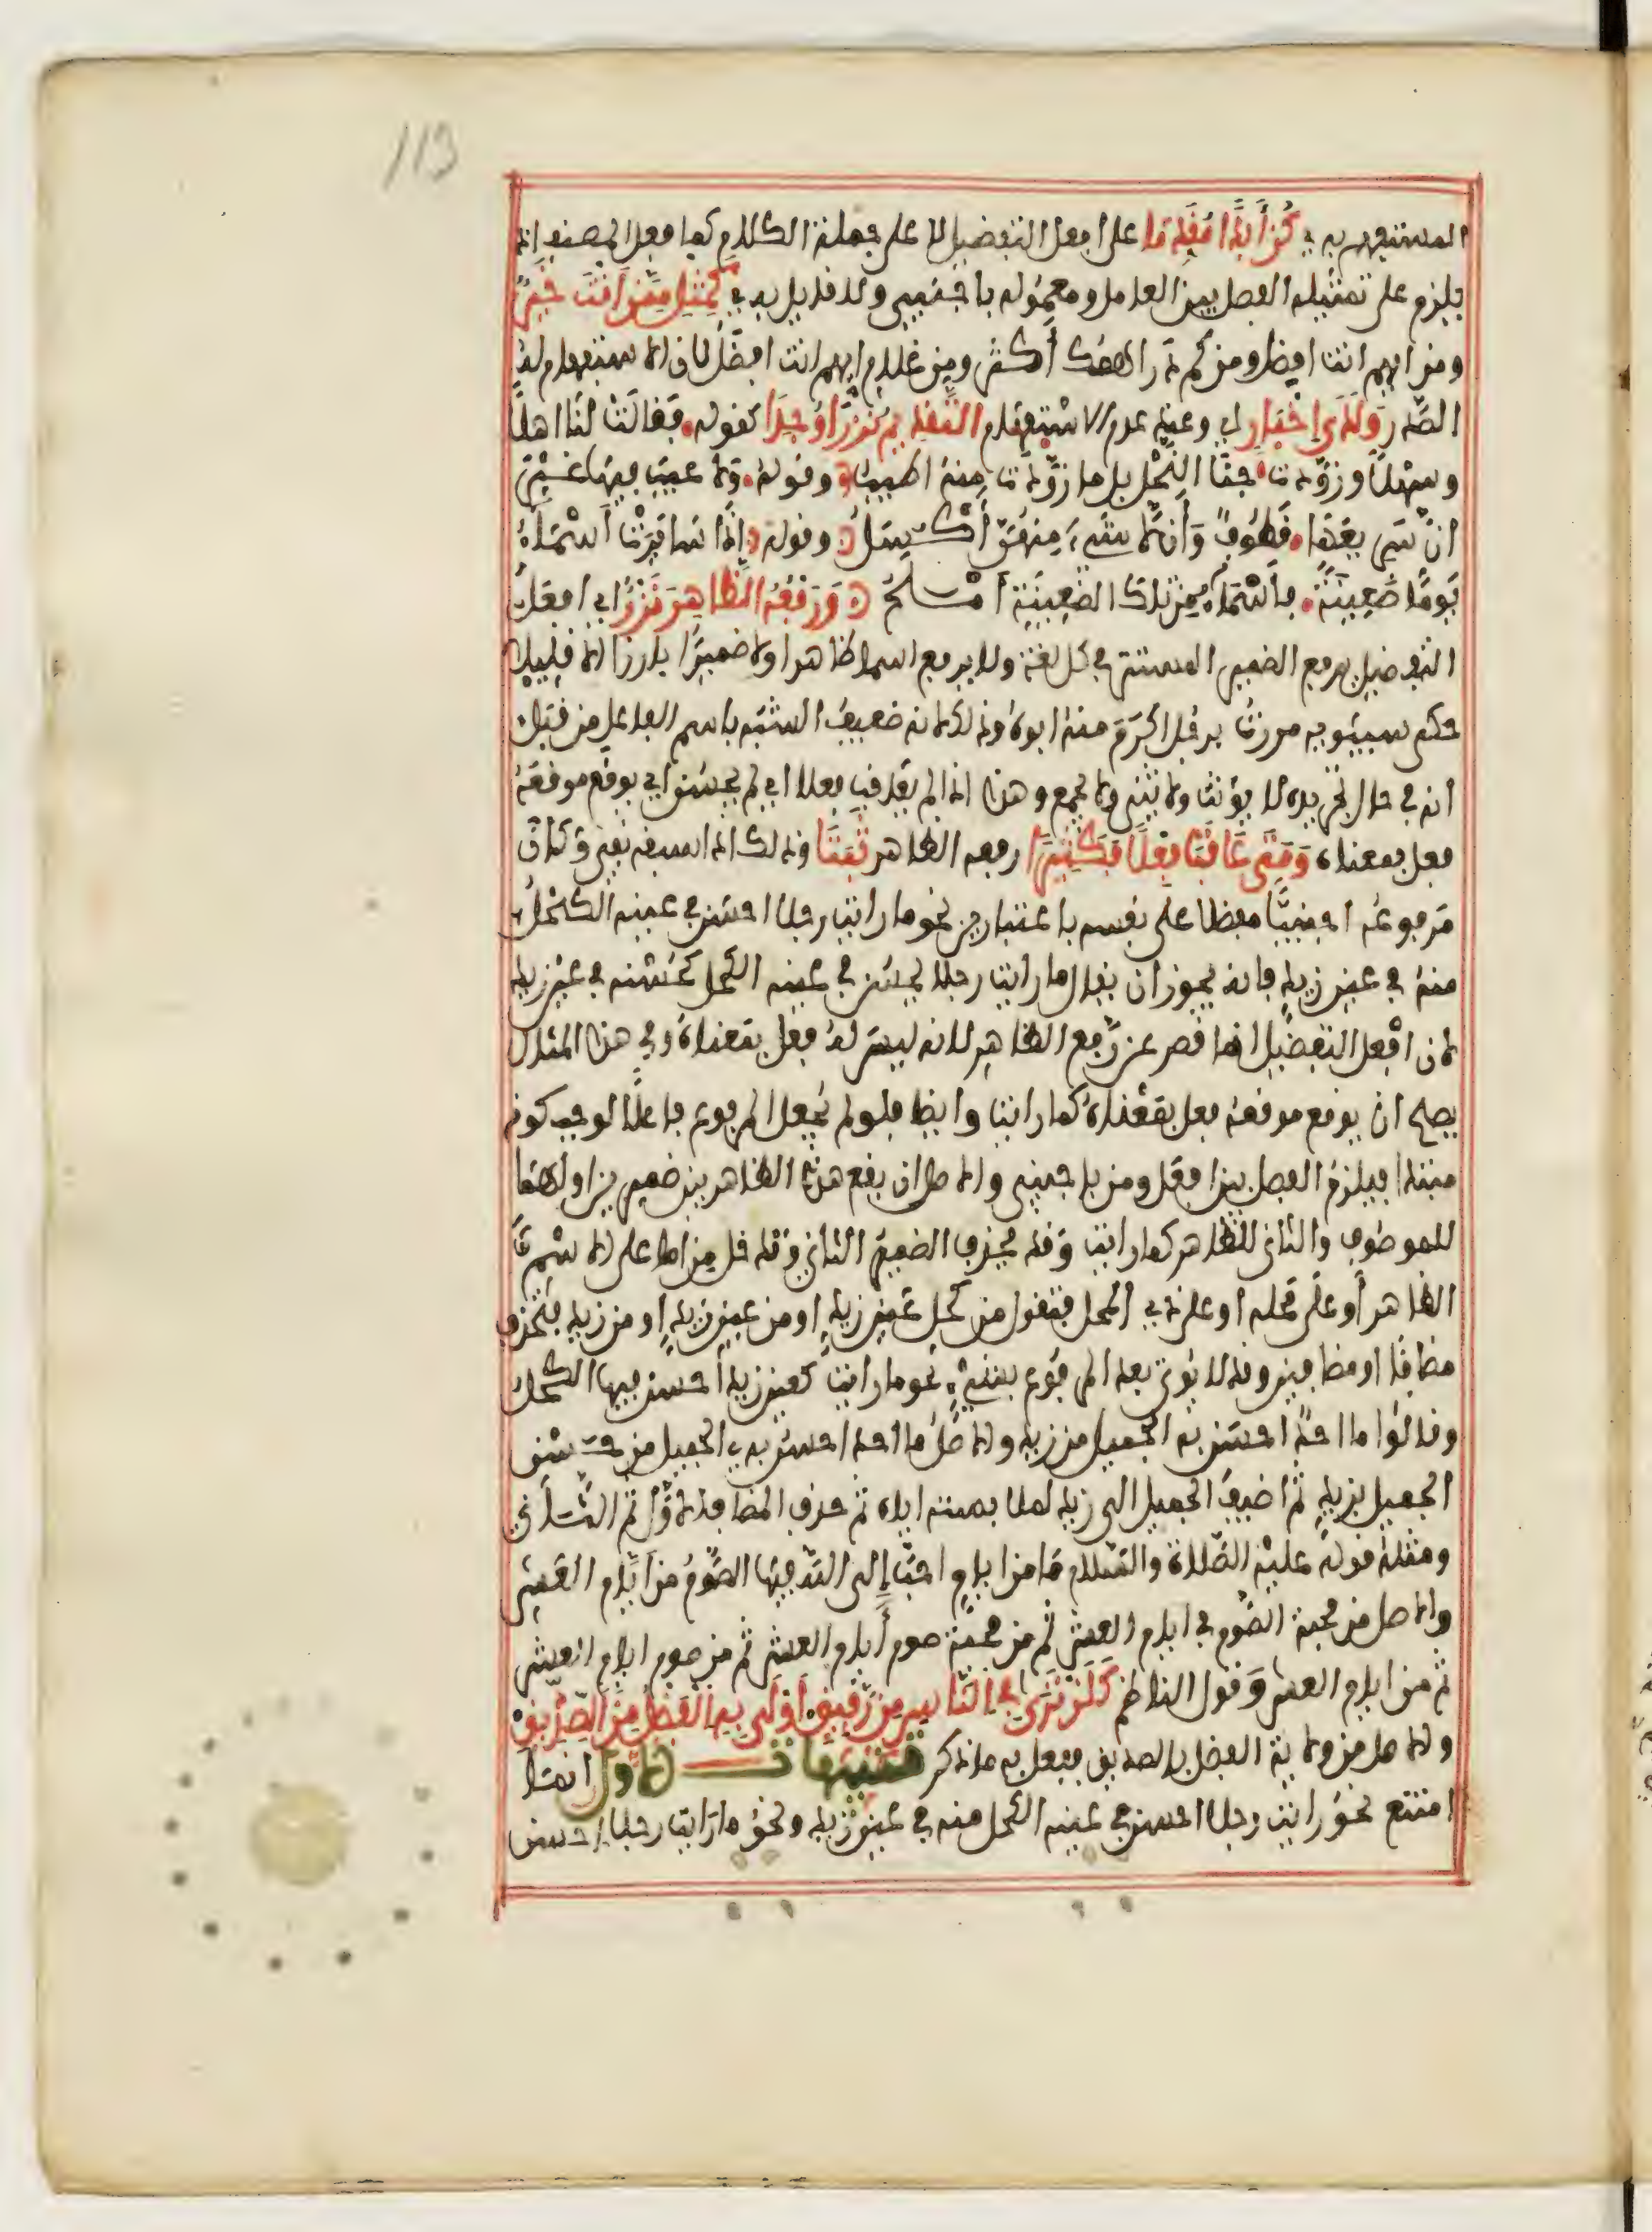 113
المستفهم به كن أبدا مقدما على افعل التفضيل لا على جملة الكلام كما فعل المصنف اذ
يلزم على تمثيله الفصل بين العامل ومعموله باجنبي ولا قايل به كمثل ممن أنت خير
ومن ايهم انت افضل ومن كم دراهمك أكثر ومن غلام ايهم انت افضل لان الاستفهام له
الصدر ولدى إخبار اي وعند عدم الاستفهام التقديم نزرا وجدا كقوله فقالت لنا اهلا
وسهلا وزودت جنا النحل بل ما زودت منه اطيب وقوله ولا عيب فيها غير
ان سريعها قطوف وأن لا شيء منهن أكسل وقوله إذا سايرت أسماء
يوما ضعينة فأسماء من تلك الضعينة أملح ورفعه الظاهر نزر اي افعل
التفضيل يرفع الضمير المستتر في كل لغة ولا يرفع اسما ظاهرا ولا ضميرا بارزا الا قليلا
حكى سيبويه مررت برجل اكرم منه ابوه وذلك لانه ضعيف الشبه باسم الفاعل من قبل
انه في حال تجريده لا يؤنث ولا يثنى ولا يجمع وهذا اذا لم يعاقب فعلا اي لم يحسن اي يوقع موقعه
فعل بمعناه ومتى عاقب فعلا فكثيرا رفعه الظاهر ثبتا وذلك اذا سبقه نفي وكان
مرفوعه اجنبيا مفضلا على نفسه باعتبارين نحو ما رايت رجلا احسن في عينه الكحل
منه في عين زيد فانه يجوز ان يقال ما رايت رجلا يحسن في عينه الكحل كحسنه في عين زيد
لان افعل التفضيل انما قصر عن رفع الظاهر لانه ليس له فعل بمعناه وفي هذا المثال
يصح ان يوقع موقعه فعل بمعناه كما رايت وايضا فلو لم يجعل المرفوع فاعلا لوجب كونه
مبتدا فيلزم الفصل بين افعل ومن باجنبي والاصل ان يقع هذا الظاهر بين ضميرين اولهما
للموصوف والثاني للظاهر كما رايت وقد يحذف الضمير الثاني وتدخل من اما على الاسم
الظاهر أو على محله او على ذي المحل فتقول من كحل عين زيد او من عين زيد او من زيد فتحذف
مضافا او مضافين وقد لا يؤتى بعد المرفوع بشيء نحو ما رايت كعين زيد أحسن فيها الكحل
وقالوا ما احد احسن به الجميل من زيد والاصل ما احد احسن به الجميل من حسن
الجميل بزيد ثم اضيف الجميل الى زيد لملابسته اياه ثم حذف المضاف الاول ثم الثاني
ومثله قوله عليه الصلاة والسلام ما من ايام احب إلى الله فيها الصوم من ايام العشر
والاصل من محبة الصوم في ايام العشر ثم من محبة صوم أيام العشر ثم من صوم ايام العشر
ثم من ايام العشر وقول الناظم كلن ترى في الناس من رفيق أولى به الفضل من الصديق
والاصل من ولاية الفضل بالصديق ففعل به ما ذكر تنبيهات الاول انما
امتنع نحو رايت رجلا احسن في عينه الكحل منه في عين زيد ونحو ما رايت رجلا احسن